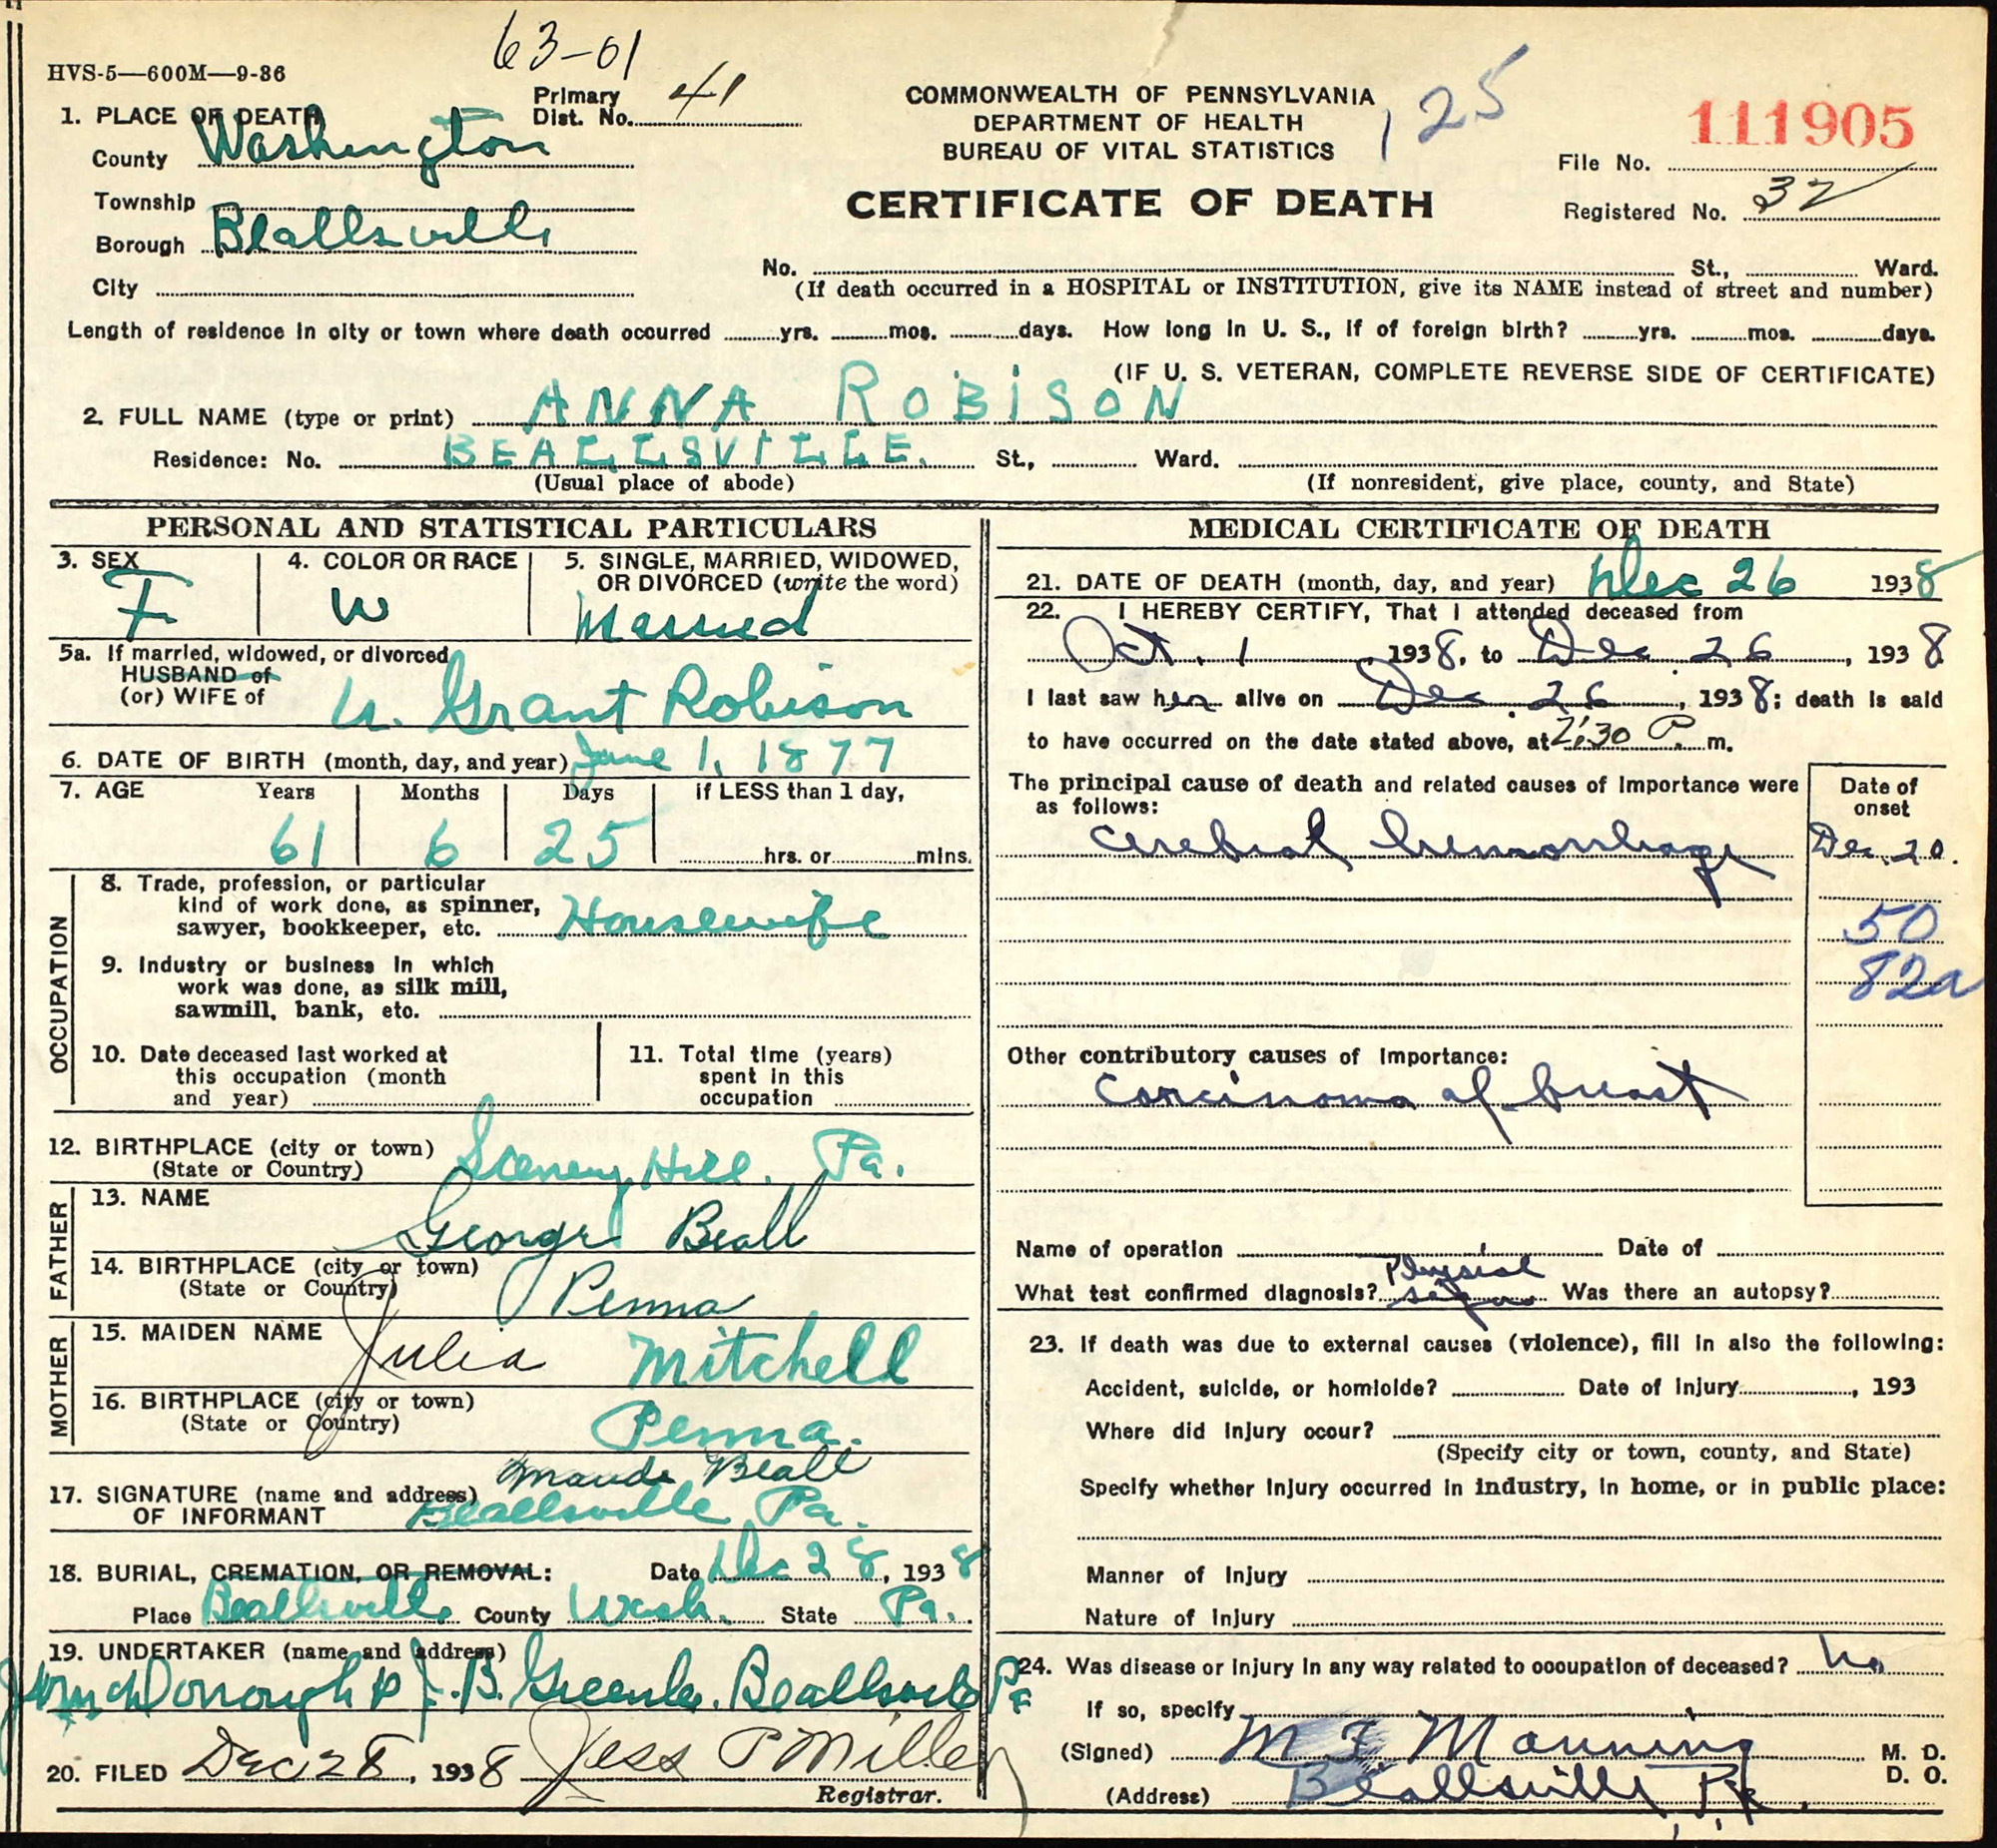 HVS-5—600M—9-36
63-01
Primary
Dist. No. 41
COMMONWEALTH OF PENNSYLVANIA
DEPARTMENT OF HEALTH
BUREAU OF VITAL STATISTICS
125
CERTIFICATE OF DEATH
111905
File No.
Registered No. 32
1. PLACE OF DEATH
County Washington
Township
Borough Beallsville
City
No. St., Ward.
(If death occurred in a HOSPITAL or INSTITUTION, give its NAME instead of street and number)
Length of residence in city or town where death occurred yrs. mos. days. How long in U. S., if of foreign birth? yrs. mos. days.
(IF U. S. VETERAN, COMPLETE REVERSE SIDE OF CERTIFICATE)
2. FULL NAME (type or print) ANNA ROBISON
Residence: No. BEALLSVILLE. St., Ward.
(Usual place of abode) (If nonresident, give place, county, and State)
PERSONAL AND STATISTICAL PARTICULARS
3. SEX F
4. COLOR OR RACE W
5. SINGLE, MARRIED, WIDOWED,
OR DIVORCED (write the word)
Married
5a. If married, widowed, or divorced
HUSBAND of
(or) WIFE of U. Grant Robison
6. DATE OF BIRTH (month, day, and year) June 1, 1877
7. AGE Years Months Days If LESS than 1 day,
61 6 25 hrs. or mins.
OCCUPATION
8. Trade, profession, or particular
kind of work done, as spinner,
sawyer, bookkeeper, etc. Housewife
9. Industry or business in which
work was done, as silk mill,
sawmill, bank, etc.
10. Date deceased last worked at
this occupation (month
and year)
11. Total time (years)
spent in this
occupation
12. BIRTHPLACE (city or town)
(State or Country) Scenery Hill. Pa.
FATHER
13. NAME
George Beall
14. BIRTHPLACE (city or town)
(State or Country) Penna
MOTHER
15. MAIDEN NAME
Julia Mitchell
16. BIRTHPLACE (city or town)
(State or Country) Penna.
Maude Beall
17. SIGNATURE (name and address)
OF INFORMANT Beallsville Pa.
18. BURIAL, CREMATION, OR REMOVAL: Date Dec 28, 1938
Place Beallsville County Wash. State Pa.
19. UNDERTAKER (name and address)
McDonough J. B. Greenlee. Beallsville Pa
20. FILED Dec 28, 1938 Jess P Miller
Registrar.
MEDICAL CERTIFICATE OF DEATH
21. DATE OF DEATH (month, day, and year) Dec 26 1938
22. I HEREBY CERTIFY, That I attended deceased from
Oct. 1 1938, to Dec. 26, 1938
I last saw her alive on Dec. 26, 1938; death is said
to have occurred on the date stated above, at 2:30 P. m.
The principal cause of death and related causes of importance were
as follows:
Date of
onset
Cerebral hemorrhage Dec. 20.
50
82a
Other contributory causes of importance:
Carcinoma of breast
Name of operation Date of
Physical
What test confirmed diagnosis? signs Was there an autopsy?
23. If death was due to external causes (violence), fill in also the following:
Accident, suicide, or homicide? Date of injury , 193
Where did injury occur?
(Specify city or town, county, and State)
Specify whether injury occurred in industry, in home, or in public place:
Manner of injury
Nature of injury
24. Was disease or injury in any way related to occupation of deceased? no
If so, specify
(Signed) M F Manning M. D.
D. O.
(Address) Beallsville, Pa.